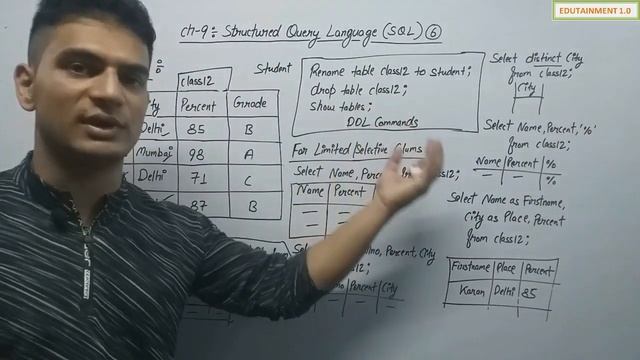 EDUTAINMENT 1.0
ch-9:- Structured Query Language (SQL) 6
Student
class12
Percent Grade
Delhi 85 B
Mumbai 98 A
Delhi 71 C
87 B
Rename table class12 to student;
drop table class12;
show tables;
DDL Commands
For Limited/Selective Clums
Select Name,
class12;
Name Percent
Percent, City
class12;
Percent City
Select distinct City
from class12;
City
Select Name, Percent, '%'
from class12;
Name Percent %
%
Select Name as Firstname,
City as Place, Percent
from class12;
Firstname Place Percent
Karan Delhi 85